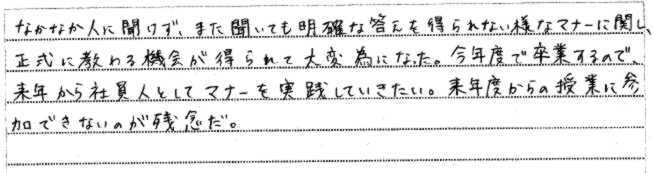 なかなか人に聞けず、また聞いても明確な答えを得られない様なマナーに関し、
正式に教わる機会が得られて大変為になった。今年度で卒業するので、
来年から社員人としてマナーを実践していきたい。来年度からの授業に参
加できないのが残念だ。